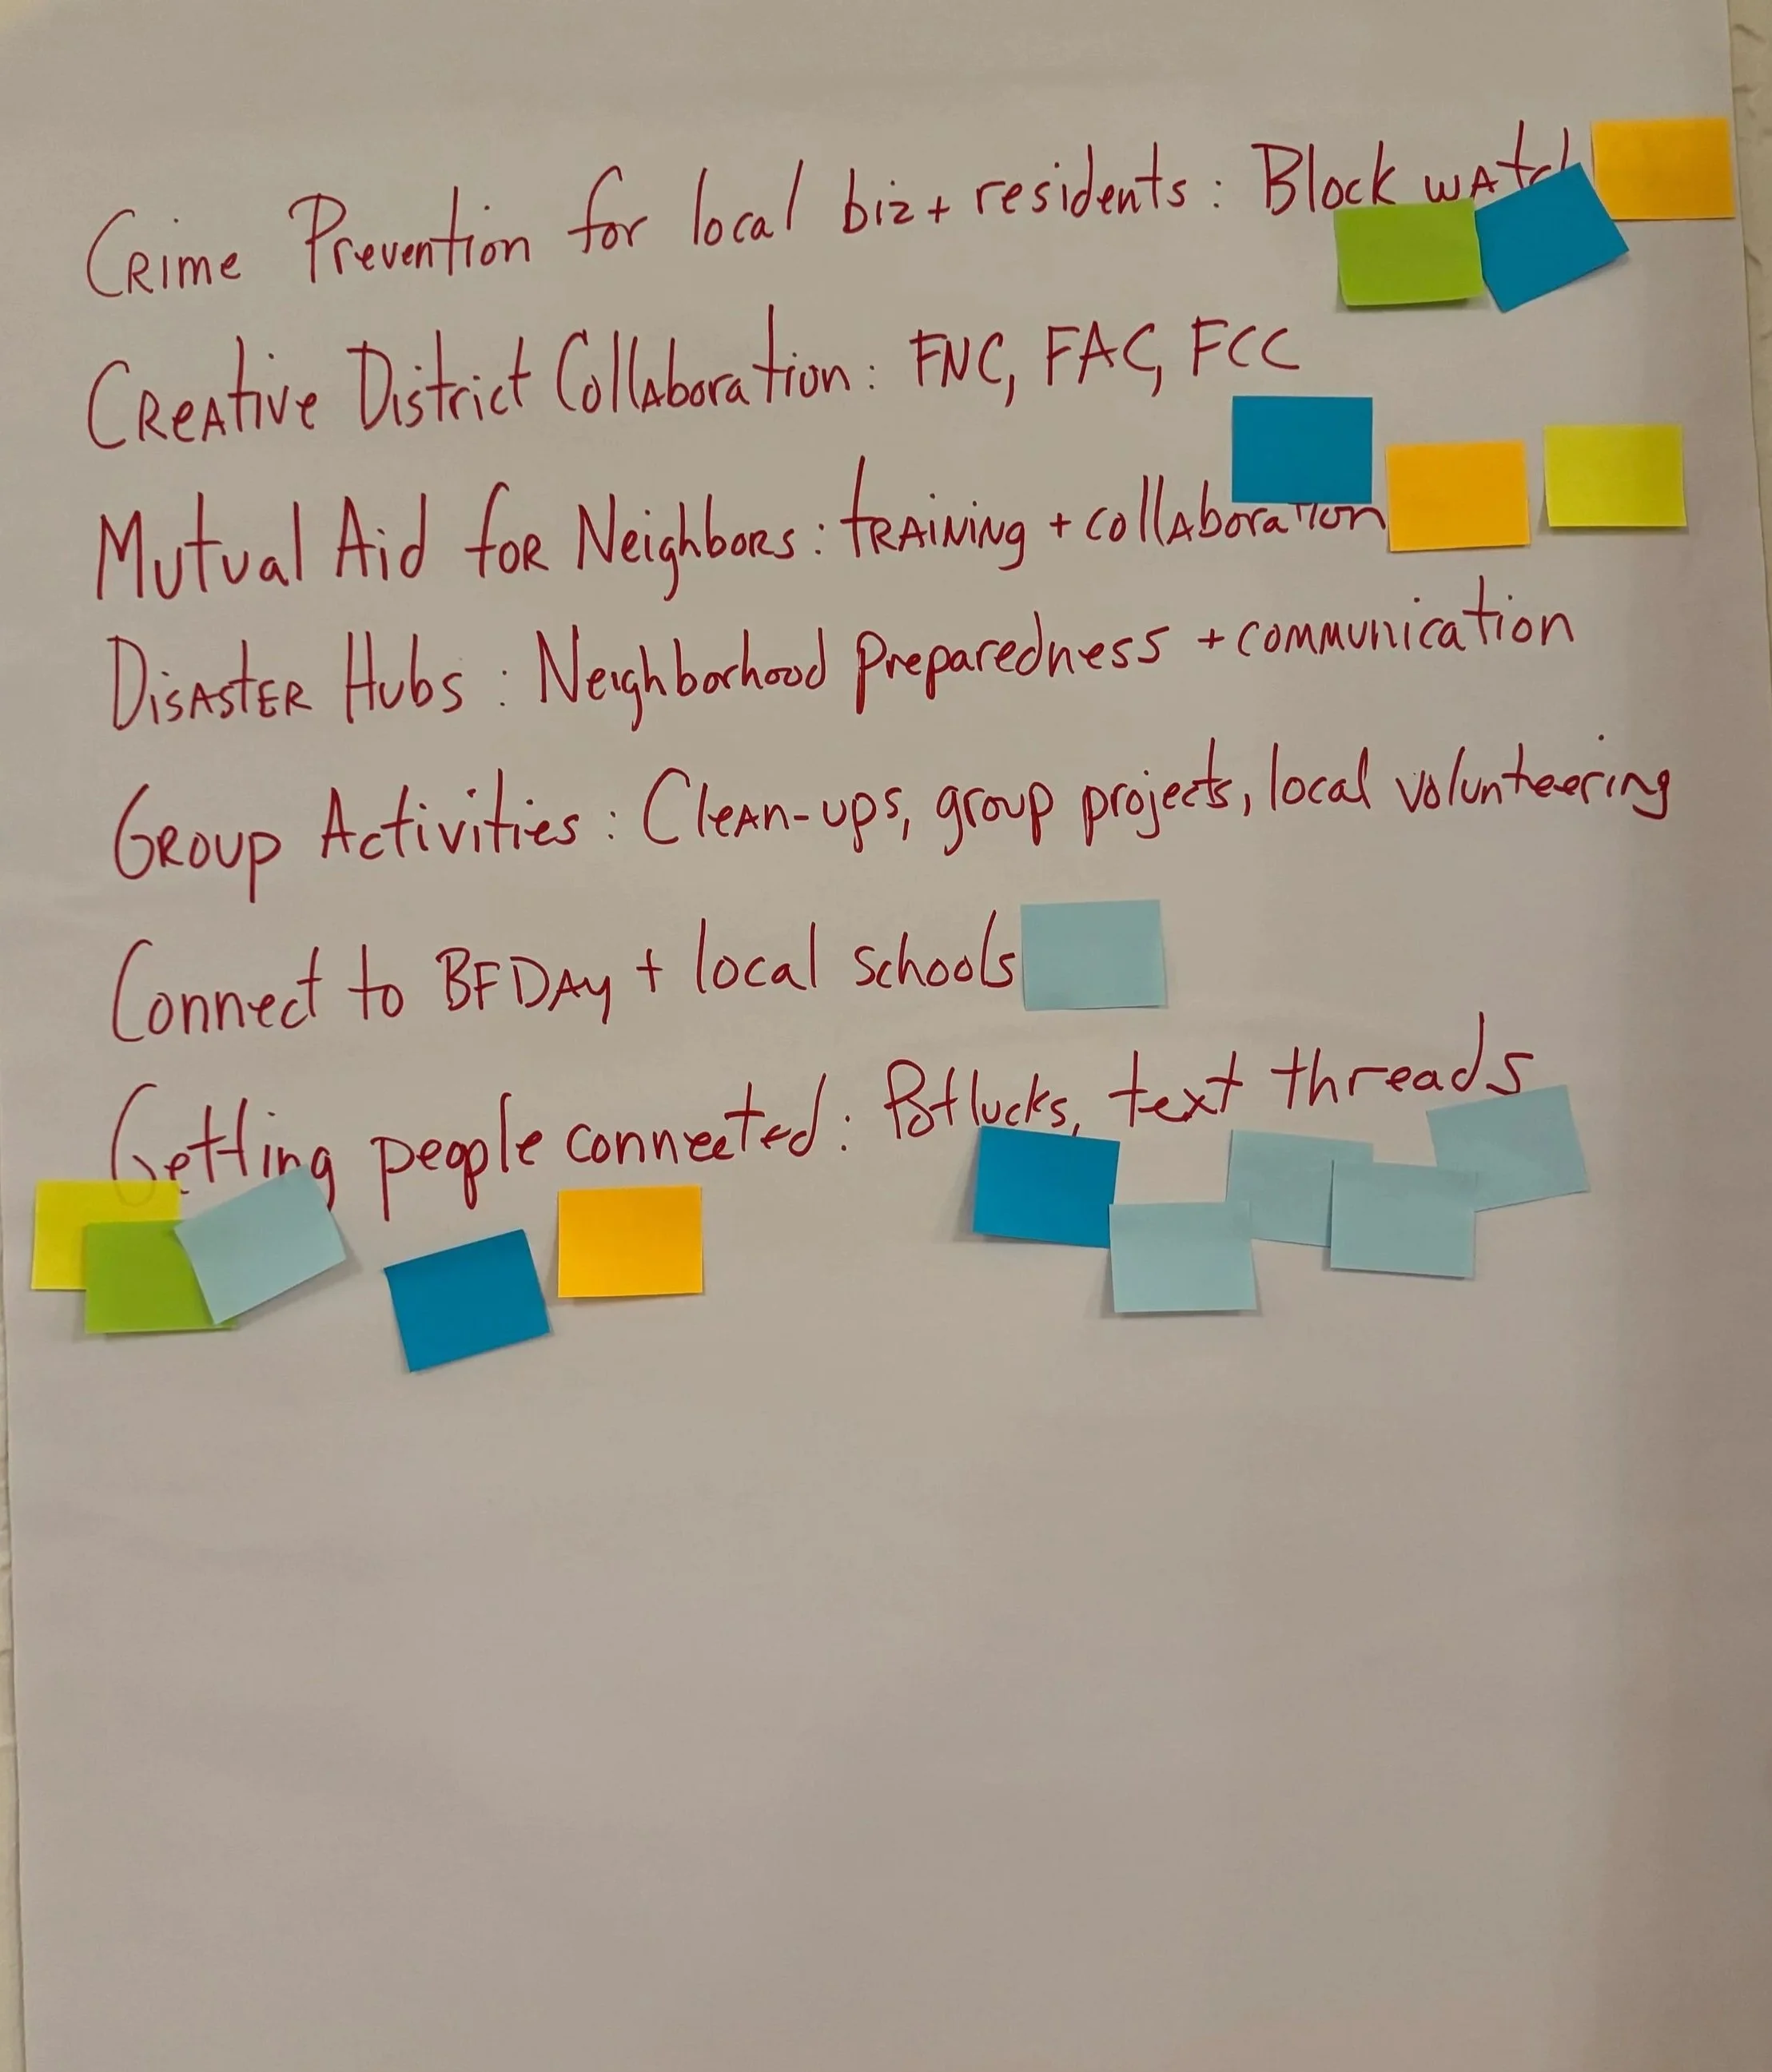 Crime Prevention for local biz + residents : Block watch
Creative District Collaboration : FNC, FAC, FCC
Mutual Aid for Neighbors : training + collaboration
Disaster Hubs : Neighborhood Preparedness + communication
Group Activities : Clean-ups, group projects, local volunteering
Connect to BFDAy + local schools
Getting people connected : Potlucks, text threads